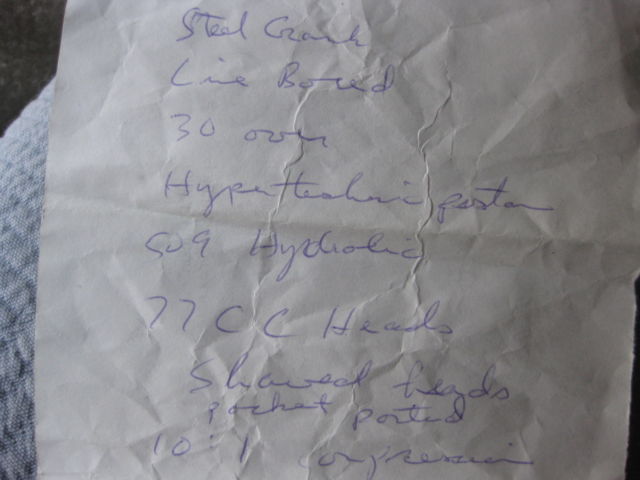 Steel Crank
Line Bored
30 over
piston
509 Hydrolic
77 CC Heads
Shaved heads
pocket ported
10:1 compression